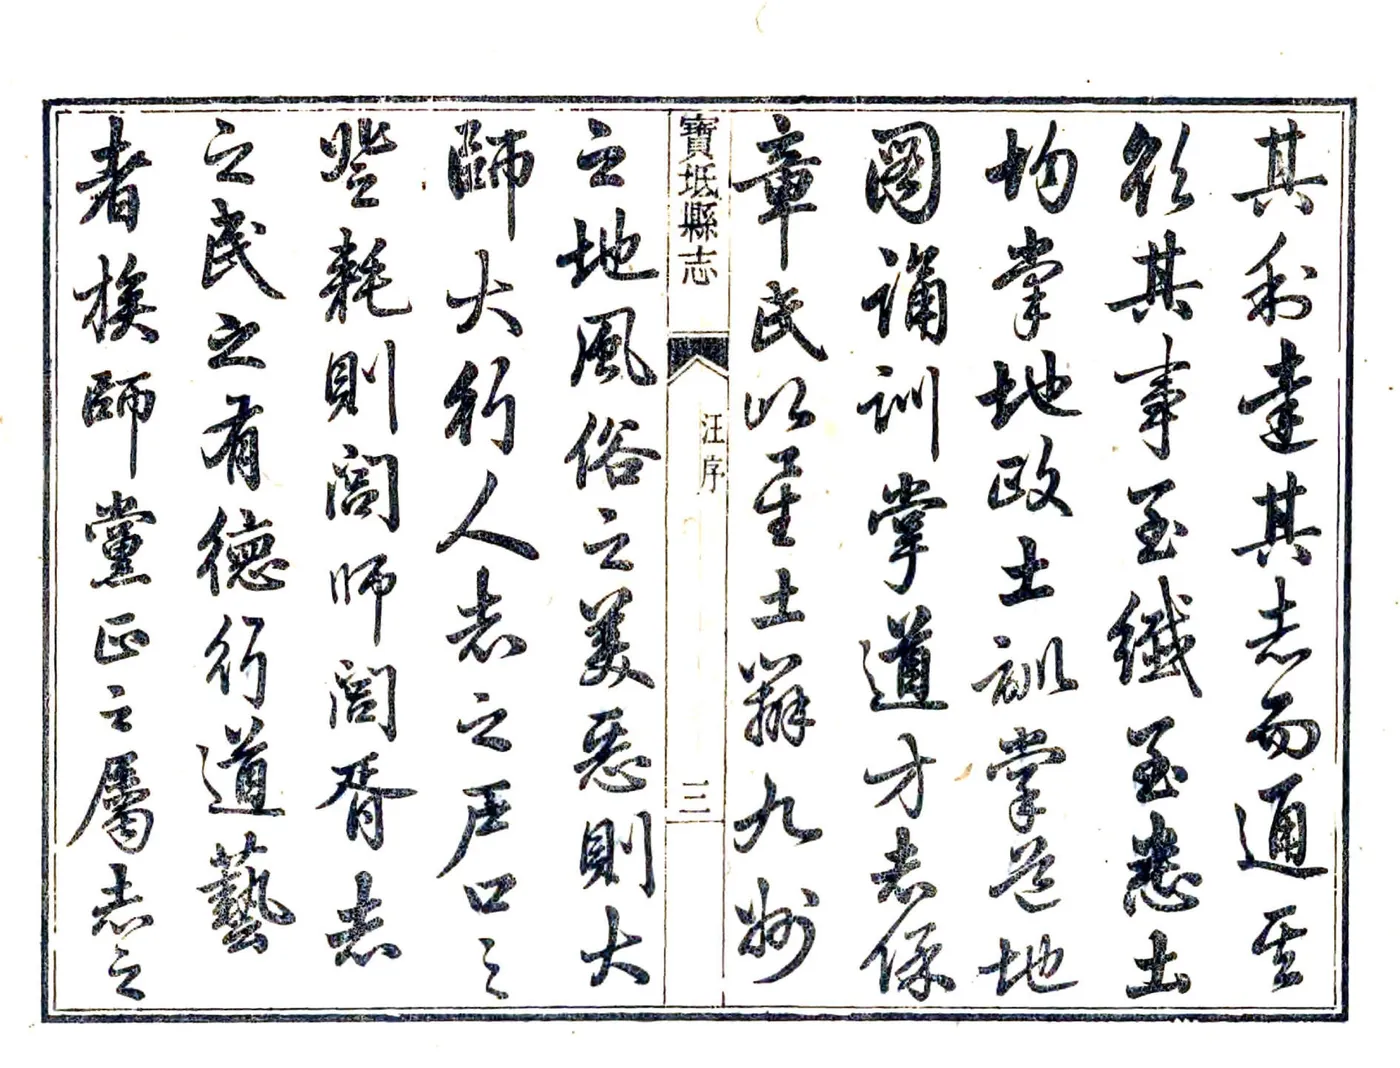 其利達其志而通其
欲其事至纖至悉土
均掌地政土訓掌道地
圖誦訓掌道方志保
章氏以星土辨九州
寶坻縣志
汪序
三
之地風俗之美惡則大
師大行人志之戶口之
登耗則閭師閭胥志
之民之有德行道藝
者族師黨正之屬志之